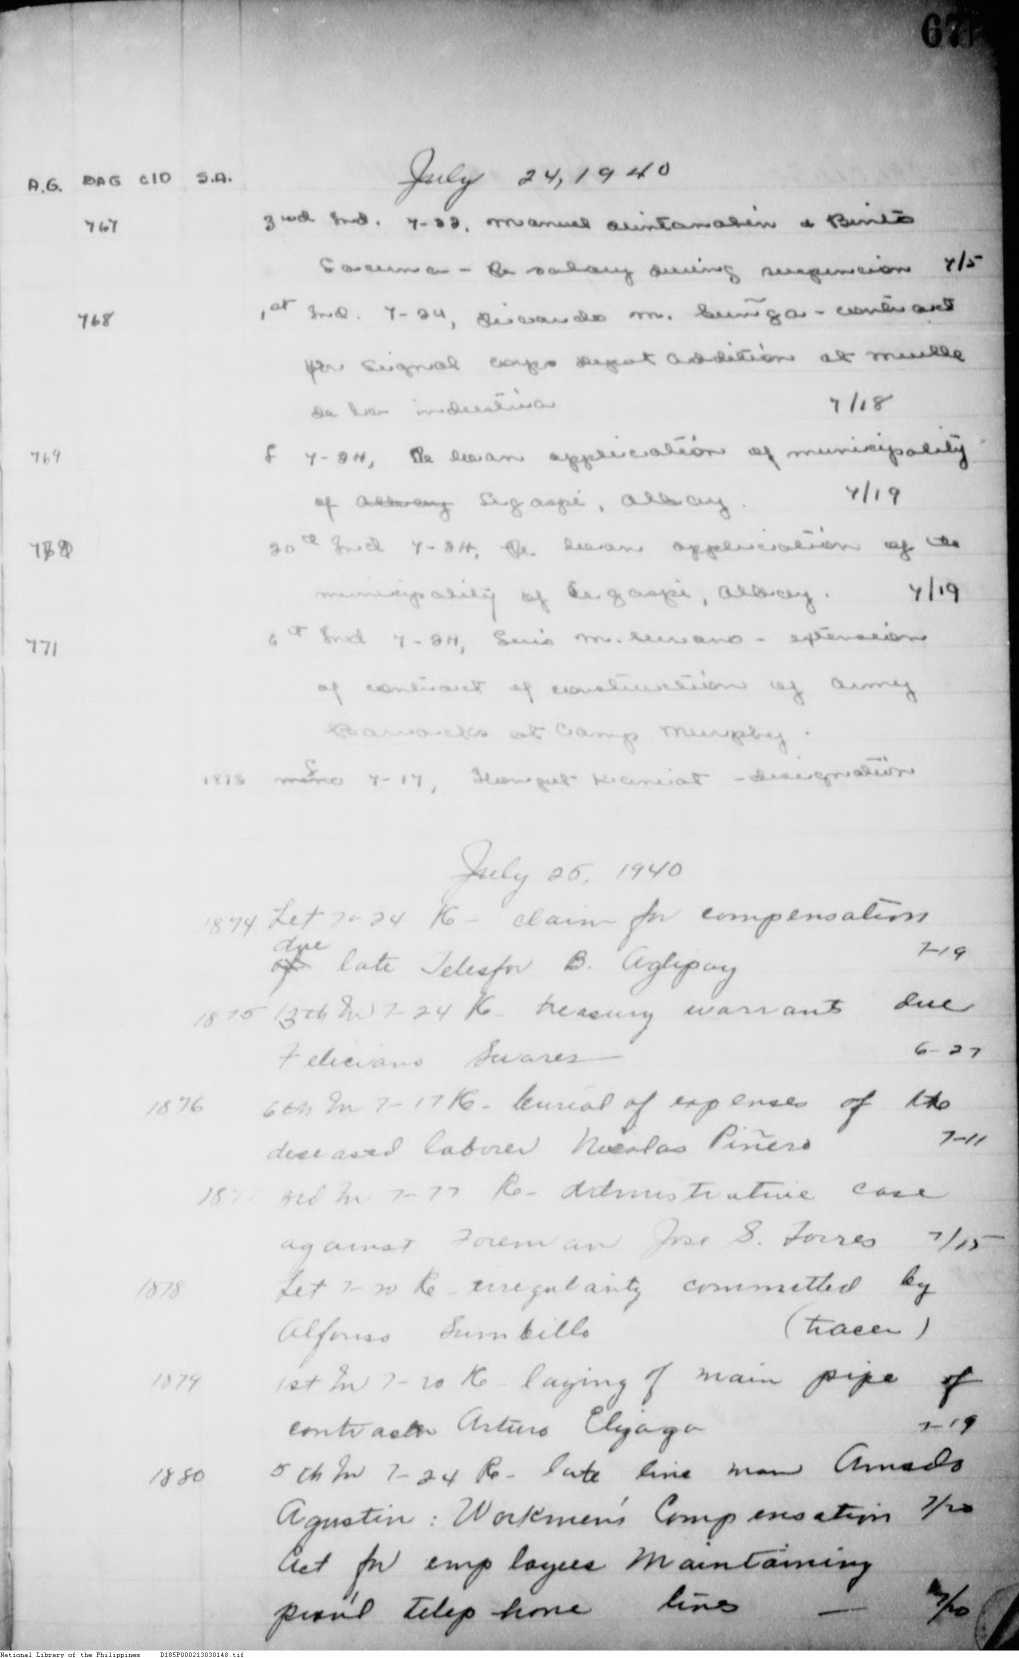 67
July 24, 1940
A.G. DAG CIO S.A.
767 3rd Ind. 7-23, Manuel Quintanabin & Benito
- Re salary during suspension 7/5
768 1st Ind. 7-24, Ricardo M. Zuñga - contract
for Signal Corps Depot Addition at Muelle
de la Industria 7/18
769 L 7-24, Re loan application of municipality
of Albay Legaspi, Albay. 7/19
20th Ind 7-24, Re loan application of the
municipality of Legaspi, Albay. 7/19
771 6th Ind 7-24, Luis M. - extension
of contract of construction of Army
Barracks at Camp Murphy.
1873 L 7-17, - designation
July 25, 1940
1874 Let 7-24 Re - claim for compensation
due
of late Telesfor B. Aglipay 7-19
1875 13th In 7-24 Re - treasury warrants due
Feliciano Suares 6-27
1876 6th In 7-17 Re - burial of expenses of the
deseased laborer Nicolas Piñero 7-11
187 3rd In Re - Administrative case
against Foreman Jose S. Torres 7/15
1878 Let 7-20 Re - irregularity committed by
Alfonso Sumbillo (tracer)
1879 1st In 7-20 Re - laying of main pipe of
contractor Arturo Elizaga 7-19
1880 5th In 7-24 Re - late line man Amado
Agustin : Workmen's Compensation 7/20
Act for employees Maintaining
prov'l telephone lines — 7/20
National Library of the Philippines D185P000213030148.tif